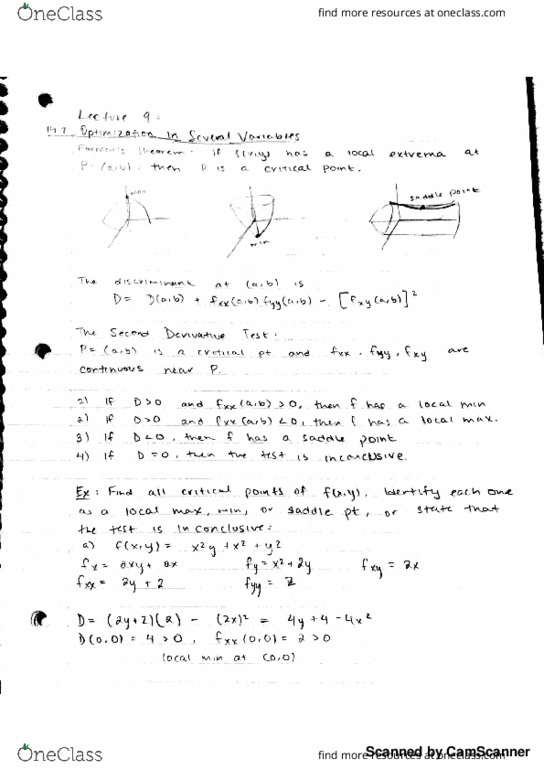 OneClass
find more resources at oneclass.com
Lecture 9:
14.7 Optimization in Several Variables
Fermat's Theorem: If f(x,y) has a local extrema at
P=(a,b), then P is a critical point.
max
min
saddle point
The discriminant at (a,b) is
D = D(a,b) + fxx(a,b) fyy(a,b) - [fxy(a,b)]²
The Second Derivative Test:
P=(a,b) is a critical pt and fxx, fyy, fxy are
continuous near P.
If D>0 and fxx(a,b)>0, then f has a local min
2) If D>0 and fxx(a,b)<0, then f has a local max.
3) If D<0, then f has a saddle point
4) If D=0, then the test is inconclusive.
Ex: Find all critical points of f(x,y), Identify each one
as a local max, min, or saddle pt, or state that
the test is inconclusive:
a) f(x,y) = x²y + x² + y²
fx = 2xy + 2x fy = x² + 2y fxy = 2x
fxx = 2y + 2 fyy = 2
D = (2y+2)(2) - (2x)² = 4y + 4 - 4x²
D(0,0) = 4 > 0, fxx(0,0) = 2 > 0
local min at (0,0)
OneClass
find more resources at oneclass.com
Scanned by CamScanner